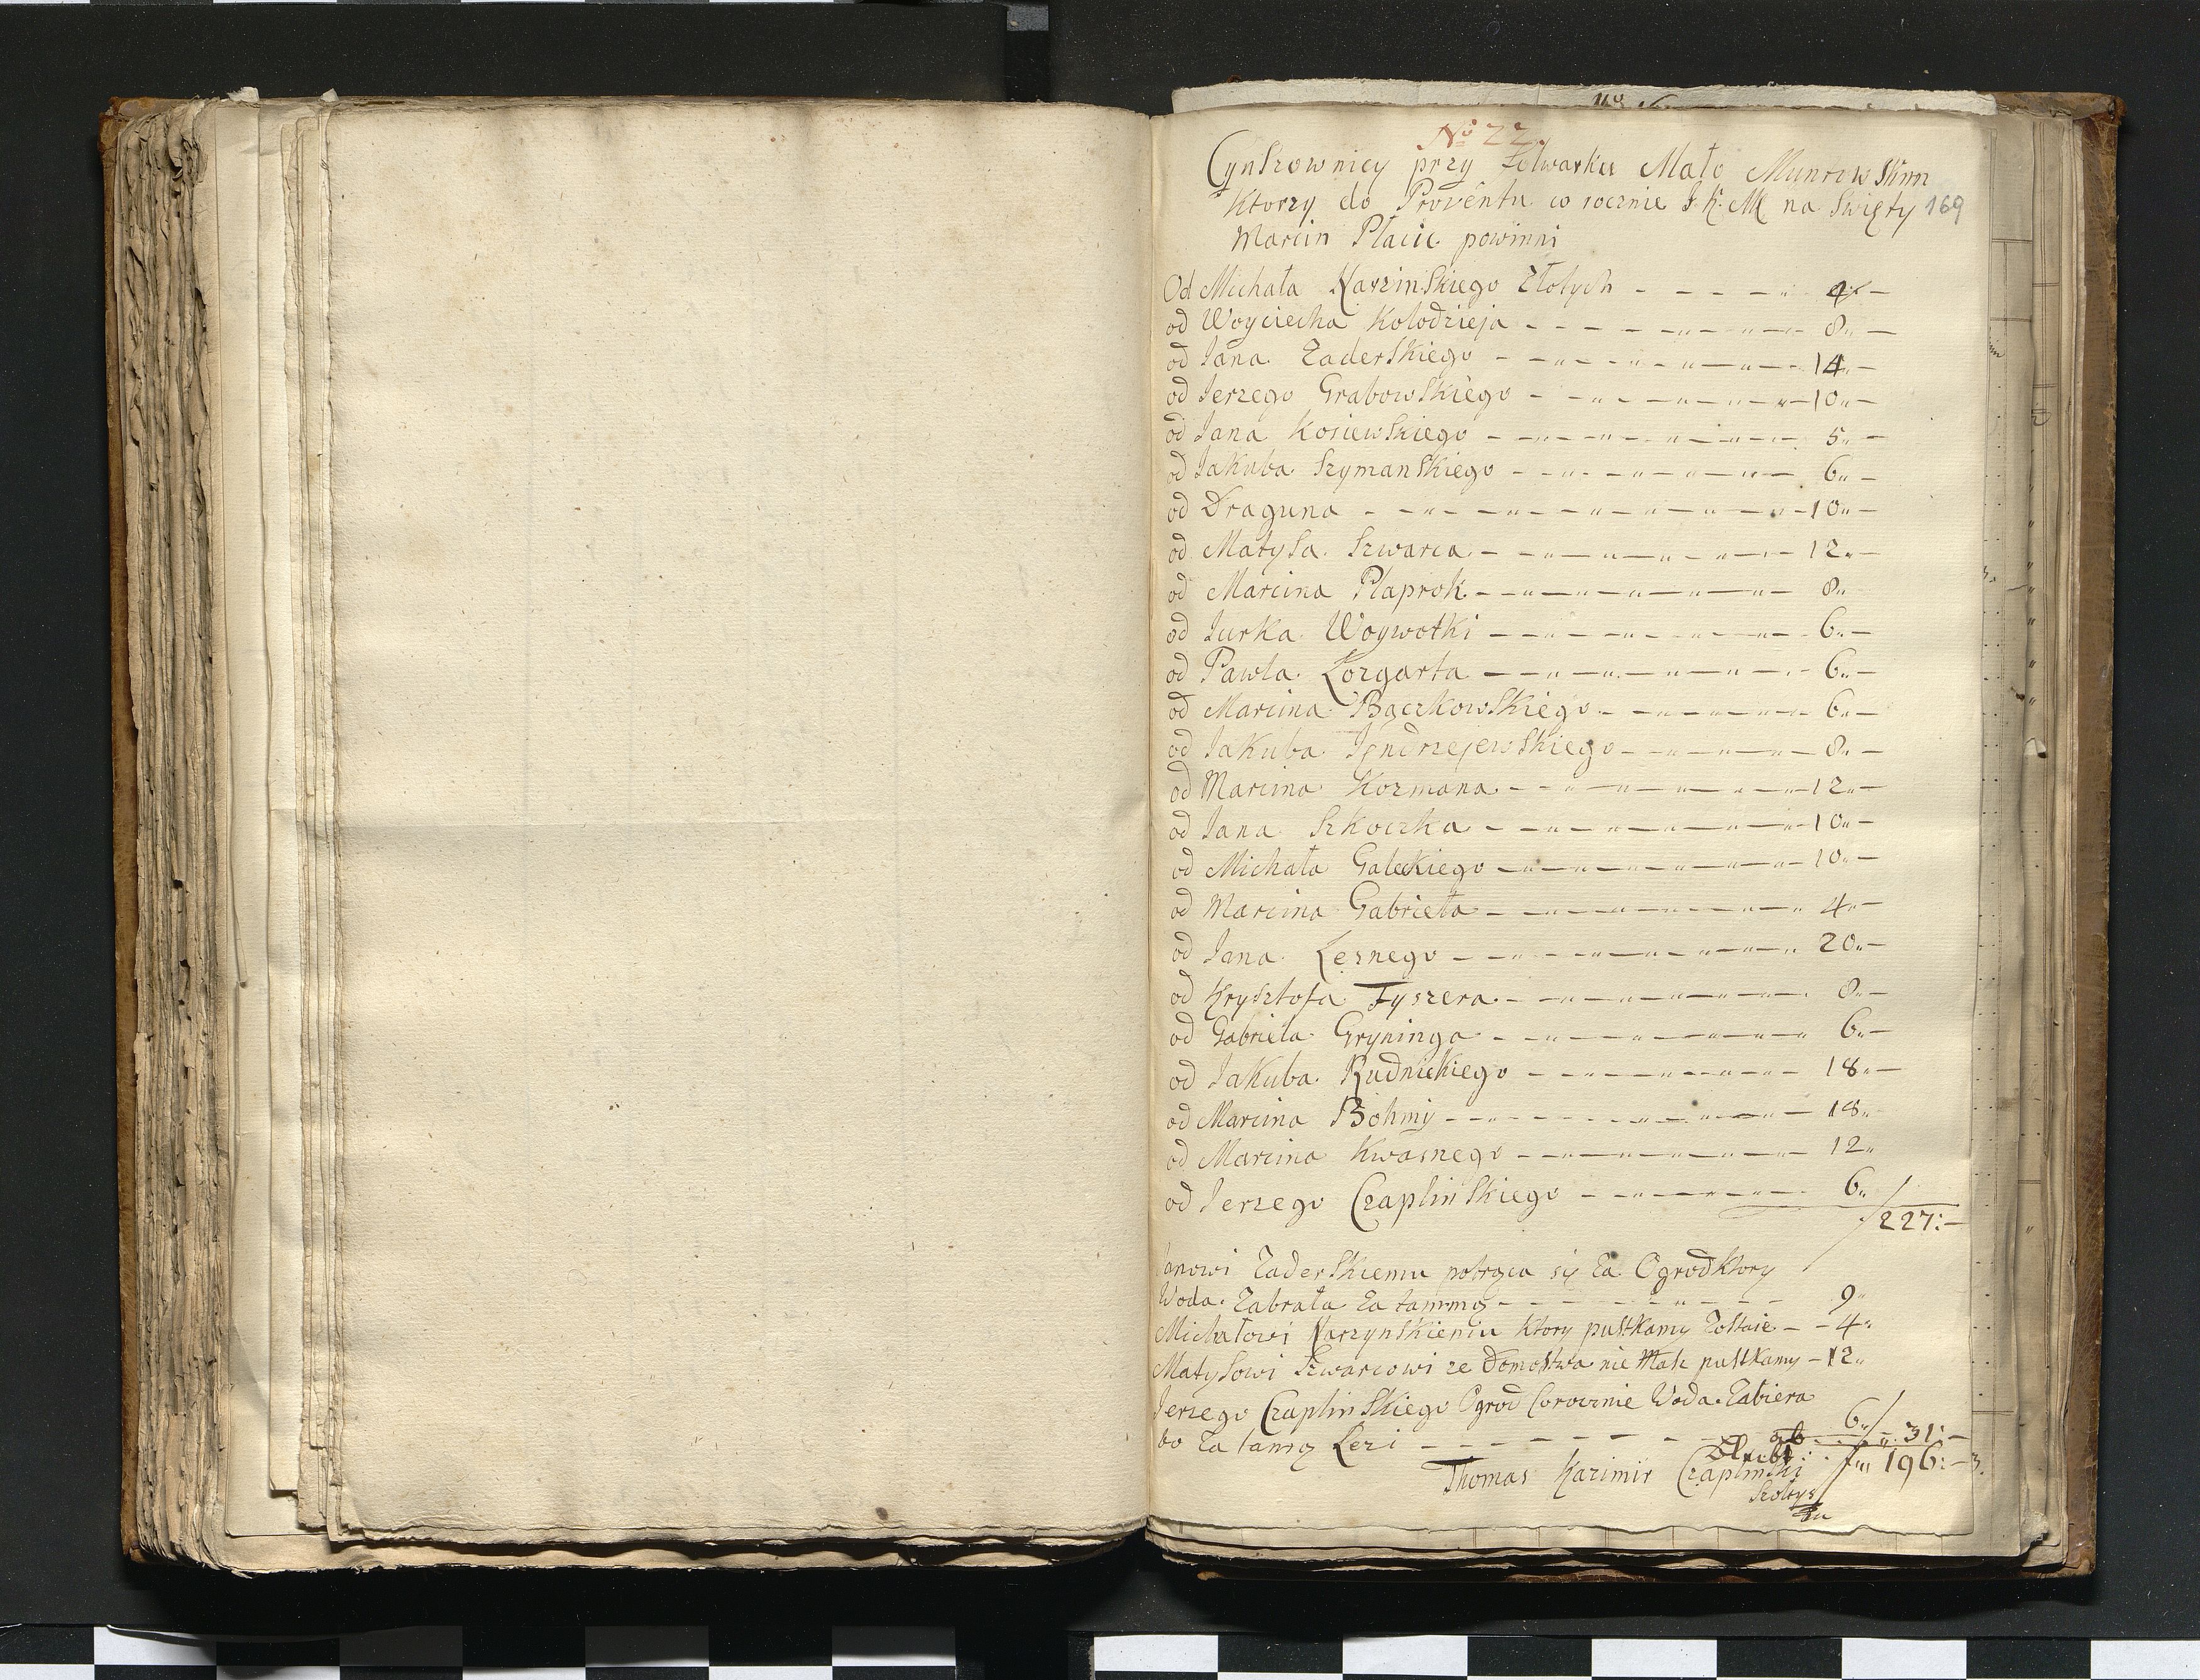 No 22.
Cynszownicy przy Folwarku Mało Muntowskim
Ktorzy do Proventu co rocznie J. K. M na Swięty 169
Marcin Płacic powinni
Od Michała Narzinskiego Złotych - - - - - 4 -
od Woyciecha Kołodzieja - - - - - 8 -
od Jana Zaderskiego - - - - - 14 -
od Jerzego Grabowskiego - - - - - 10 -
od Jana Kosiewskiego - - - - - 5 -
od Jakuba Szymanskiego - - - - - 6 -
od Draguna - - - - - 10 -
od Matysa Szwarca - - - - - 12 -
od Marcina Płaprok - - - - - 8
od Jurka Woywotki - - - - - 6 -
od Pawla Lozgarta - - - - - 6 -
od Marcina Bączkowskiego - - - - - 6 -
od Jakuba Jendrzejewskiego - - - - - 8 -
od Marcina Kozmana - - - - - 12 -
od Jana Szkoczka - - - - - 10 -
od Michała Galeckiego - - - - - 10 -
od Marcina Gabriela - - - - - 4 -
od Jana Lesnego - - - - - 20 -
od Krysztofa Fyszera - - - - - 8 -
od Gabriela Gryninga - - - - - 6 -
od Jakuba Rudnickiego - - - - - 18 -
od Marcina Bohmy - - - - - 18
od Marcina Kwasnego - - - - - 12
od Jerzego Czaplinskiego - - - - - 6
227: -
Janowi Zaderskiemu potrąca się za Ogrod Ktory
Woda Zabrała za tammą - - - - - 9
Michałowi Narzynskiemu Ktory pustkamy zostaie - - 4
Matysowi Szwarcowi ze Domostwa nie Mah pustkamy - 12
Jerzego Czaplinskiego Ogrod Corocznie Woda Zabiera
bo za tamą Lezi - - - - - 6 31: -
196: - 3.
Thomas Kazimir Czaplinski
Szołtys